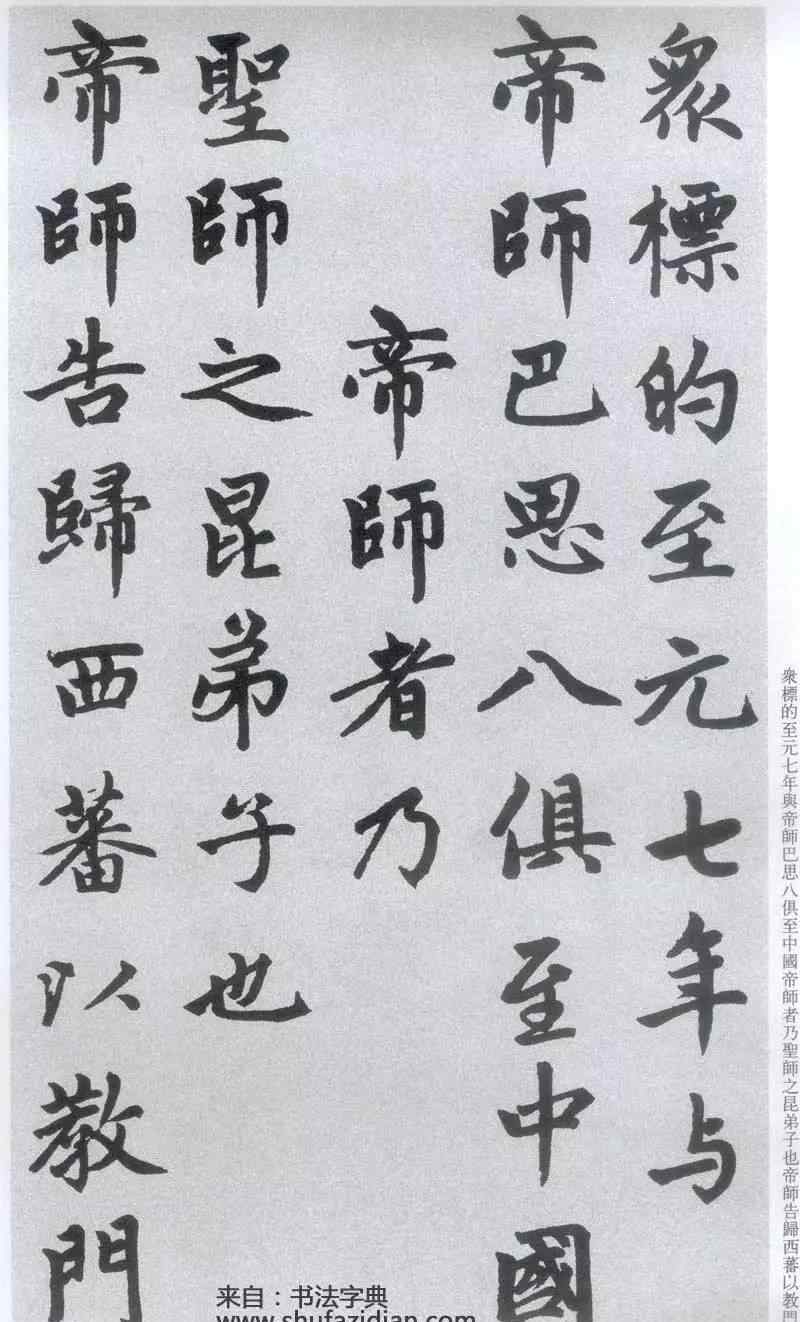 衆標的至元七年与
帝師巴思八俱至中國
帝師者乃
聖師之昆弟子也
帝師告歸西蕃以教門
衆標的至元七年與帝師巴思八俱至中國帝師者乃聖師之昆弟子也帝師告歸西蕃以教門
来自：书法字典
www.shufazidian.com